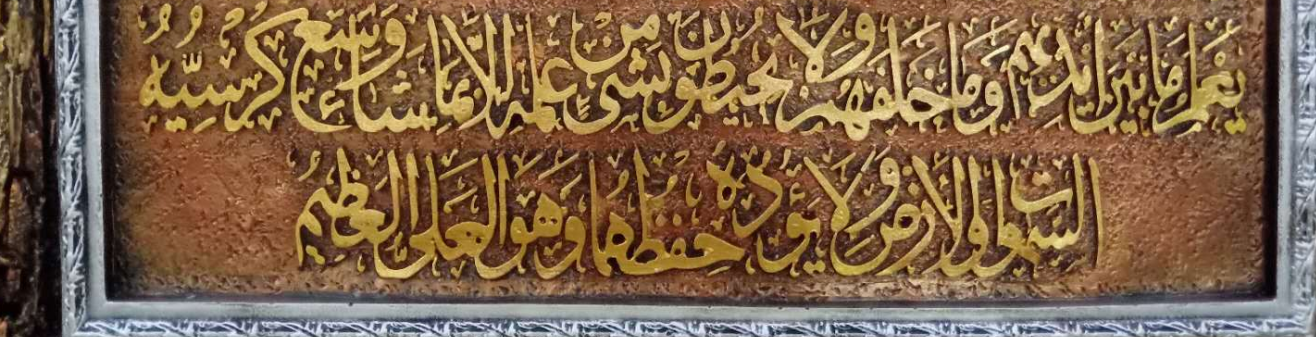 يَعْلَمُ مَا بَيْنَ أَيْدِيهِمْ وَمَا خَلْفَهُمْ وَلَا يُحِيطُونَ بِشَيْءٍ مِنْ عِلْمِهِ إِلَّا بِمَا شَاءَ وَسِعَ كُرْسِيُّهُ
السَّمَوَاتِ وَالْأَرْضَ وَلَا يَؤُدُهُ حِفْظُهُمَا وَهُوَ الْعَلِيُّ الْعَظِيمُ